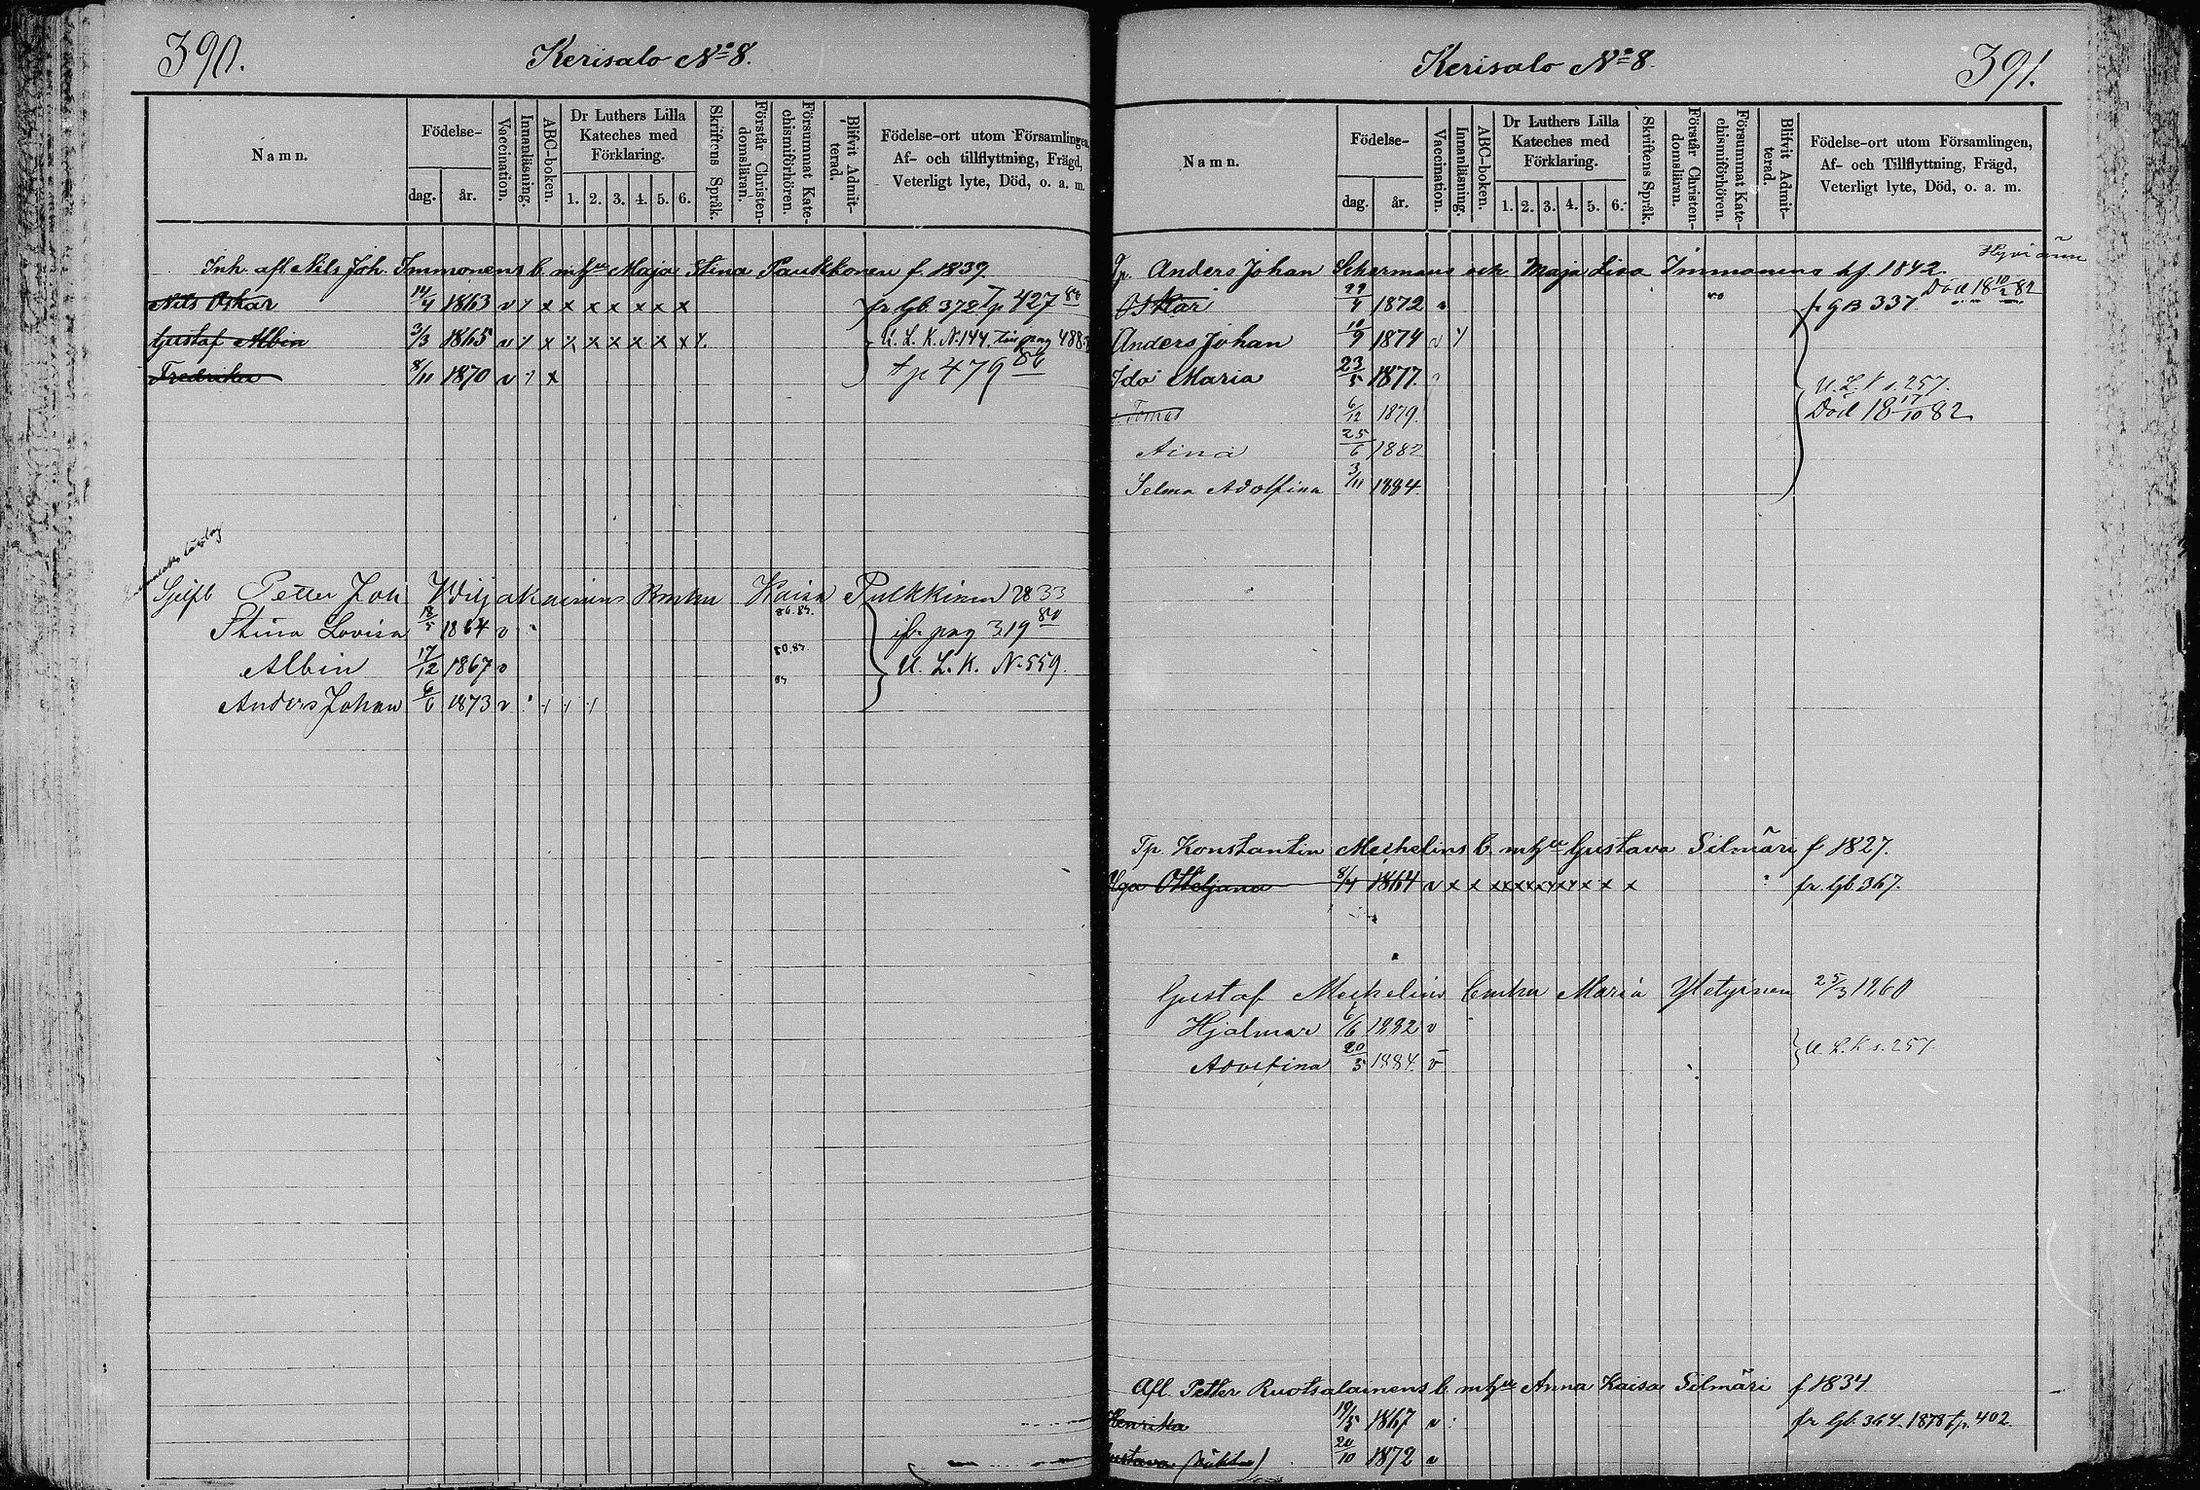 390.
Kerisalo No 8.
Namn.
Födelse-
dag.
år.
Vaccination.
Innanläsning.
ABC-boken.
Dr Luthers Lilla
Kateches med
Förklaring.
1. 2. 3. 4. 5. 6.
Skriftens Språk.
Förstår Christen-
domsläran.
Försummat Kate-
chismiförhören.
Blifvit Admit-
terad.
Födelse-ort utom Församlingen,
Af- och tillflyttning, Frägd,
Veterligt lyte, Död, o. a. m.
Inh. afl Nils Joh. Immonens b. m hu Maja Stina Paukkonen f. 1839.
Nils Oskar 14/4 1863 v x x x x x x x x fr. Gb. 372 Tp 427 88
Gustaf Albin 3/3 1865 v x x x x x x x x x U. L. K. N. 144 pag 488
Fredrika 8/11 1870 v x tp 479 86
Sjelfb Petter Joh Wiljakainens Bmhu Kaisa Pulkkinen 1833
86.87.
Stina Lovisa 18/5 1864 v ifr pag 319 80
80.87.
Albin 17/12 1867 v U. L. K. N. 559.
Anders Johan 6/6 1873 v
391.
Kerisalo No 8.
Namn.
Födelse-
dag.
år.
Vaccination.
Innanläsning.
ABC-boken.
Dr Luthers Lilla
Kateches med
Förklaring.
1. 2. 3. 4. 5. 6.
Skriftens Språk.
Förstår Christen-
domsläran.
Försummat Kate-
chismiförhören.
Blifvit Admit-
terad.
Födelse-ort utom Församlingen,
Af- och Tillflyttning, Frägd,
Veterligt lyte, Död, o. a. m.
Tp. Anders Johan Schermans och Maja Lisa Immonens hf. 1842.
Oskar 29/4 1872 fr GB 337. Död 18 10/2 82
Anders Johan 10/9 1874 v
Ida Maria 23/5 1877. U. L. K s. 257.
Tomas 6/12 1879. Död 18 17/10 82
Aina 25/6 1882
Selma Adolfina 3/11 1884.
Tp. Konstantin Mechelins b. m hu Gustava Silmäri f 1827.
Olga Otteljana 8/4 1864 v x x x x x x x x x x x fr. Gb. 367.
Gustaf Mechelins bmhu Maria Yletyinen 25/3 1860
Hjalmar 6/6 1882 v
Adolfina 20/5 1884. v U. L. K s. 257.
Afl. Petter Ruotsalainens b. m hu Anna Kaisa Silmäri f 1834
Henrika 19/5 1867 v fr Gb. 364. 1878 tp. 402
Gustava 20/10 1872 v